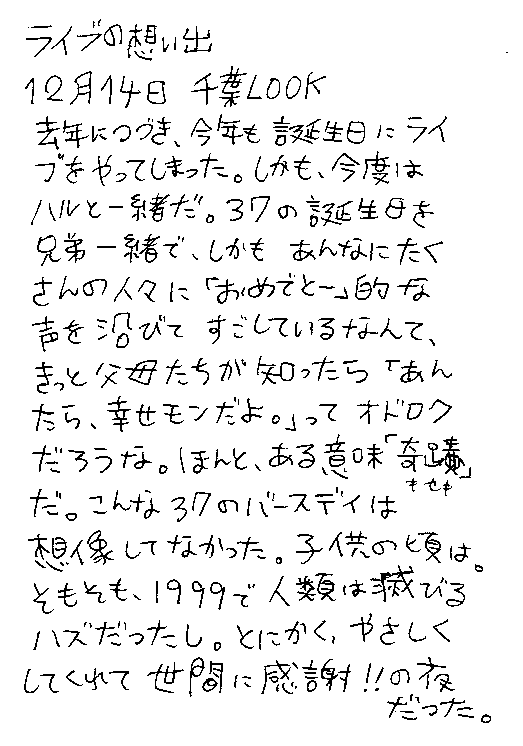 ライブの想い出
12月14日 千葉LOOK
去年につづき、今年も誕生日にライ
ブをやってしまった。しかも、今度は
ハルと一緒だ。37の誕生日を
兄弟一緒で、しかも あんなにたく
さんの人々に「おめでと〜」的な
声を浴びて すごしているなんて、
きっと父母たちが知ったら「あん
たら、幸せモンだよ。」って オドロク
だろうな。ほんと、ある意味「奇蹟」
キセキ
だ。こんな37のバースデイは
想像してなかった。子供の頃は。
そもそも、1999で人類は滅びる
ハズだったし。とにかく、やさしく
してくれて 世間に感謝!!の夜
だった。